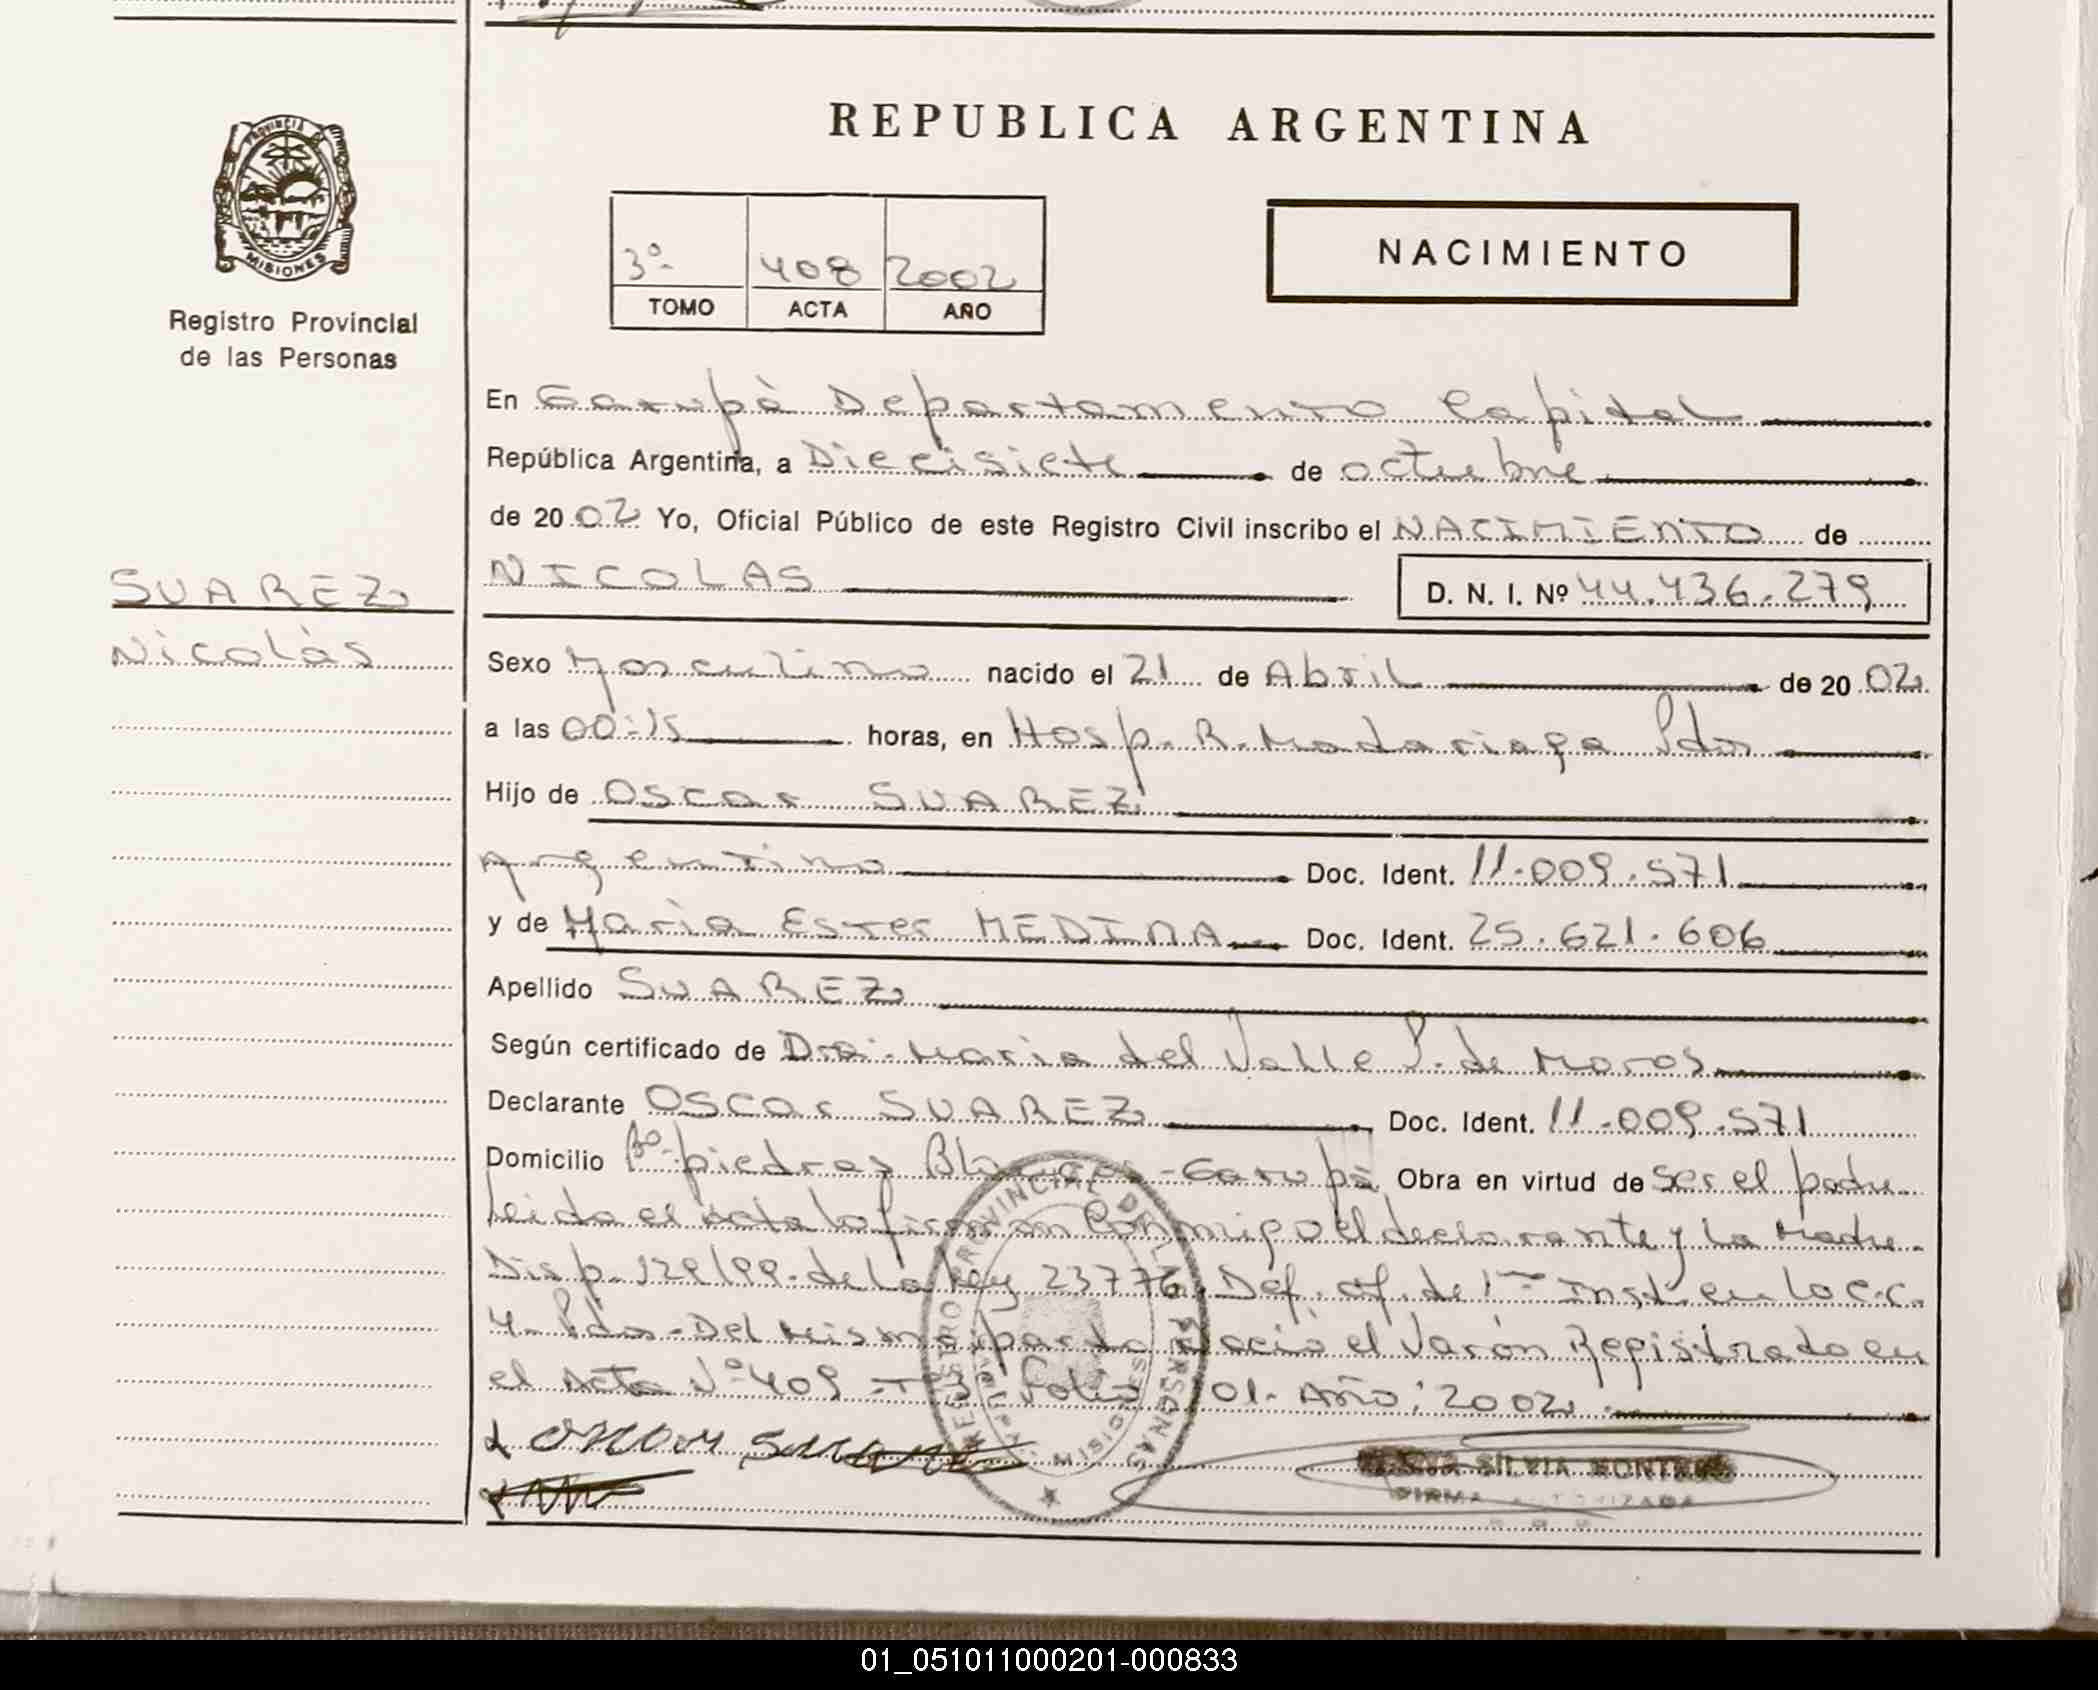 REPUBLICA ARGENTINA
PROVINCIA DE
MISIONES
Registro Provincial
de las Personas
3º 408 2002
TOMO ACTA AÑO
NACIMIENTO
En Garupà Departamento Capital
República Argentina, a Diecisiete de octubre
de 2002 Yo, Oficial Público de este Registro Civil inscribo el NACIMIENTO de
NICOLAS D. N. I. Nº 44.436.279
SUAREZ
Nicolàs
Sexo Masculino nacido el 21 de Abril de 2002
a las 00:15 horas, en Hosp. R. Madariaga Pdas
Hijo de Oscar SUAREZ
Argentino Doc. Ident. 11.009.571
y de Maria Ester MEDINA Doc. Ident. 25.621.606
Apellido SUAREZ
Según certificado de Dra. Maria del Valle P. de Moros
Declarante Oscar SUAREZ Doc. Ident. 11.009.571
Domicilio Bº piedras Blancas - Garupà Obra en virtud de ser el padre
Leida el acta la firman Conmigo el declarante y La Madre
Disp. 129/99 de La Ley 23776. Def. of. de 1ra Inst. en lo C.C.
4 Pdas - Del mismo parto Nació el Varón Registrado en
el Acta Nº 409 - Tº 3º Folio 01 - Año: 2002
REGISTRO PROVINCIAL DE LAS PERSONAS
MISIONES
Oscar Suarez
SILVIA
FIRMA AUTORIZADA
01_051011000201-000833